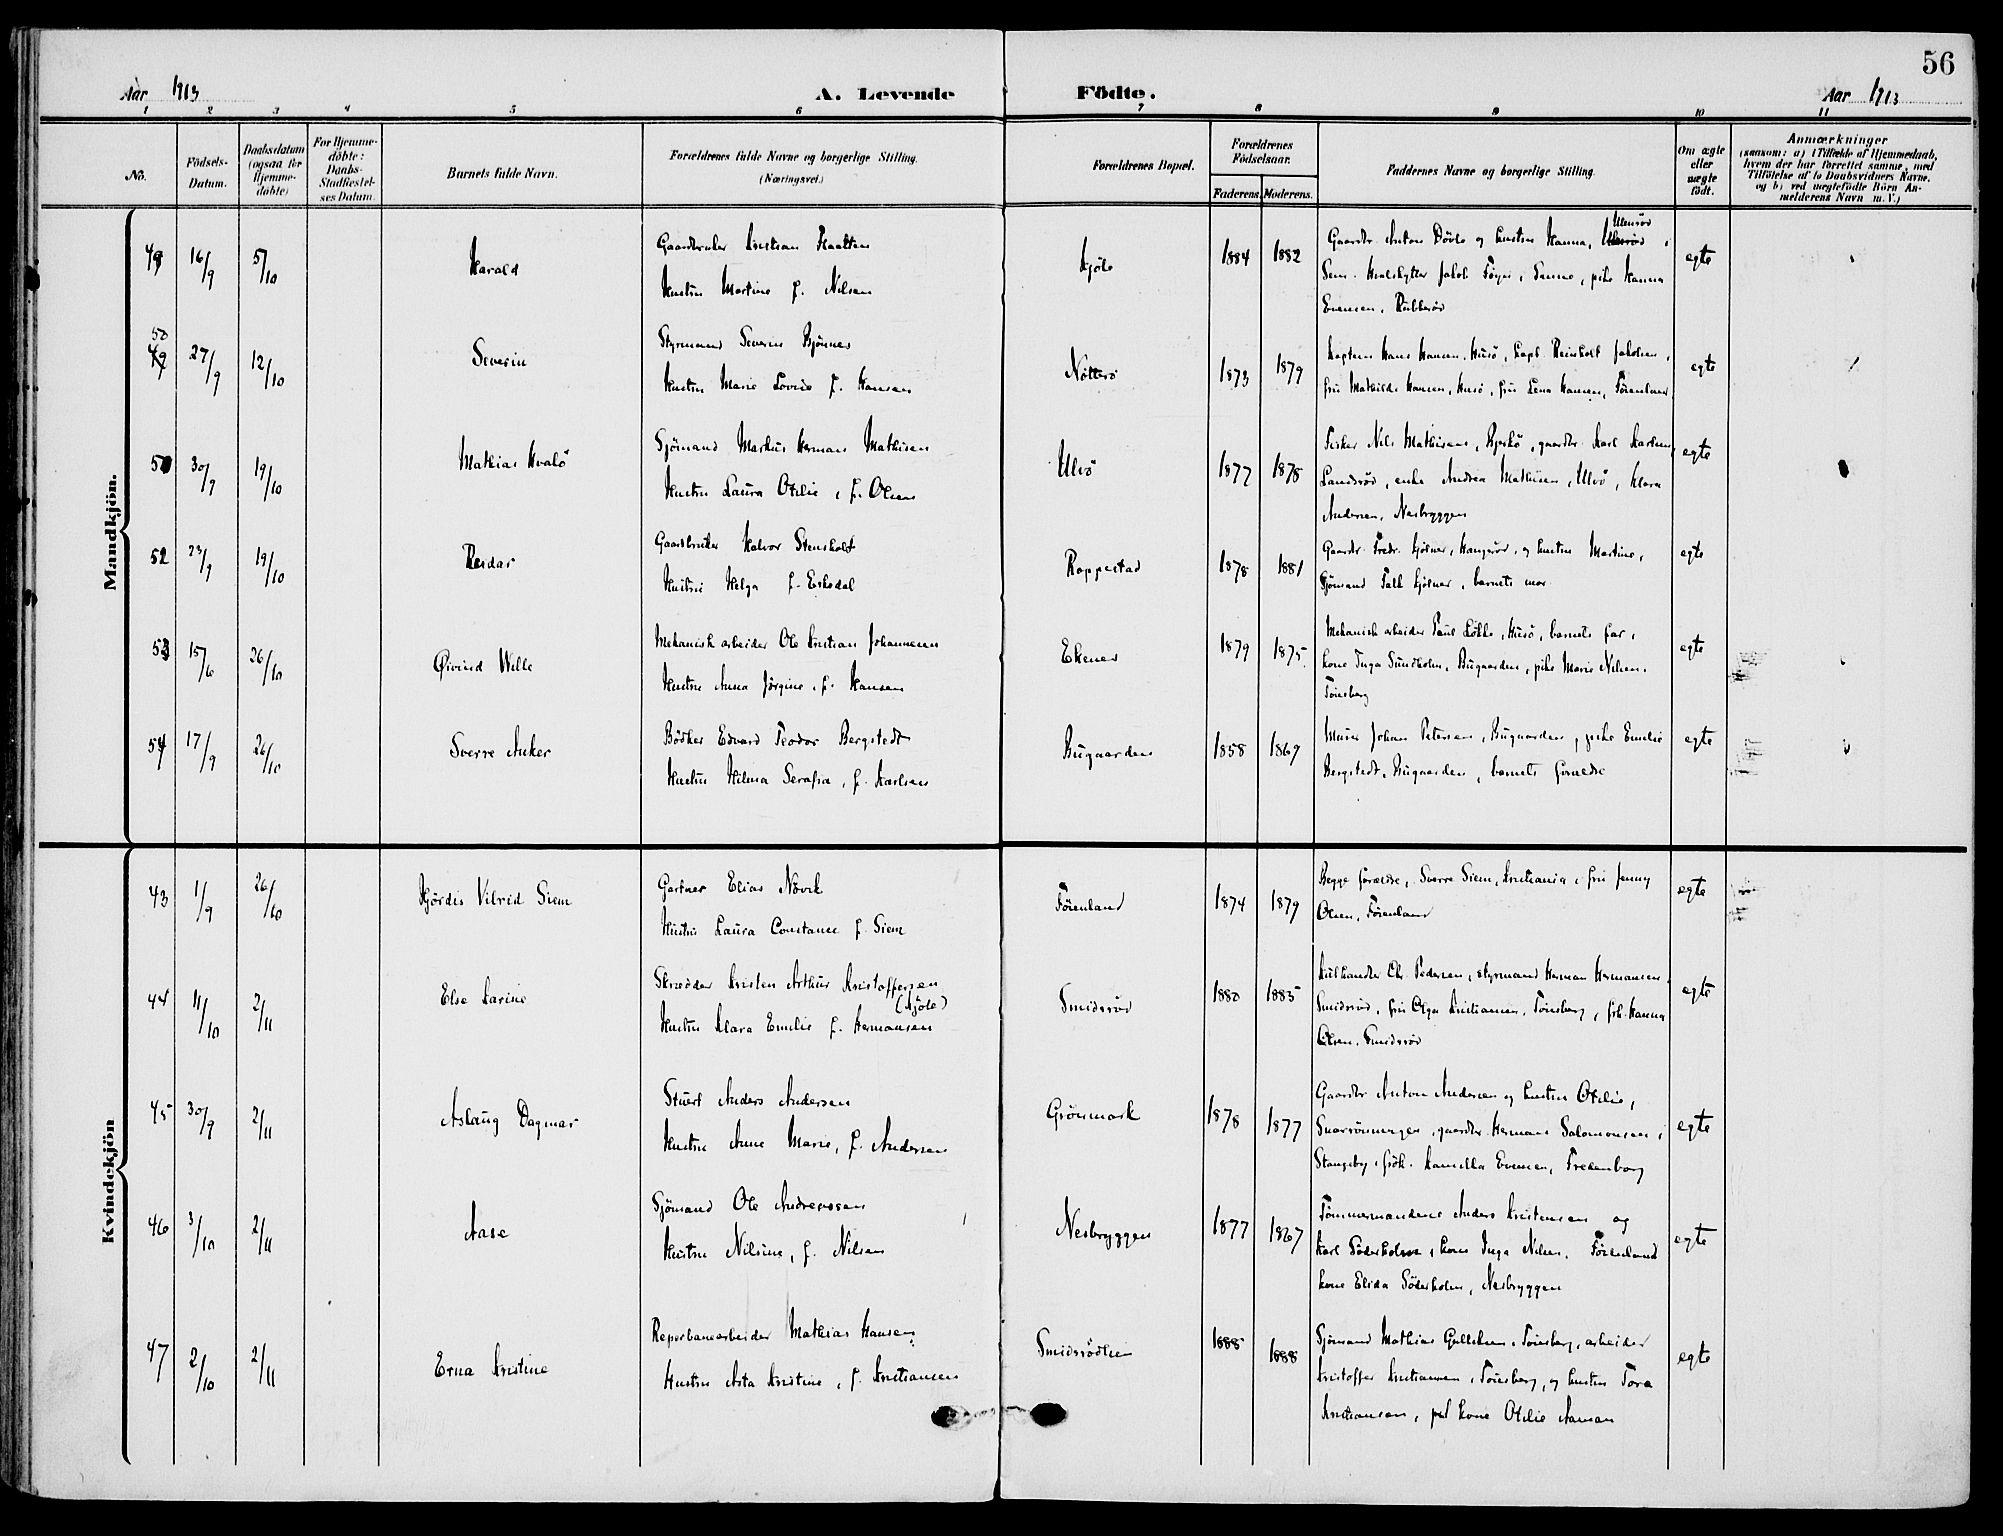 56
Aar 1913 A. Levende Födte. Aar 1913
1 2 3 4 5 6 7 8 9 10 11
No.
Födsels-
Datum.
Daabsdatum
(ogsaa for
Hjemme-
döbte)
For Hjemme-
döbte:
Daabs-
Stadfæstel-
ses Datum.
Barnets fulde Navn.
Forældrenes fulde Navne og borgerlige Stilling.
(Næringsvei.)
Forældrenes Bopæl.
Forældrenes
Födselsaar.
Faderens. Moderens.
Faddernes Navne og borgerlige Stilling.
Om ægte
eller
uægte
födt.
Anmærkninger
(saasom: a) i Tilfælde af Hjemmedaab,
hvem der har forrettet samme, med
Tilföielse af to Daabsvidners Navne,
og b) ved uægtefödte Börn An-
melderens Navn m. V.)
Mandkjön.
49 16/9 5/10 Harald
Gaardbruker Kristian
Hustru Martine f. Nilsen
Kjöle 1884 1882
Gaardbr. Anton og hustru Hanna,
Sem. Jakob pike Hanna
Evensen,
egte
50 27/9 12/10 Severin
Styrmand Severin Bjönnes
Hustru Marie Lovise f. Hansen
Nötterö 1873 1879
Kaptein Hans Hansen, Husö, kapt. Reinholt Jakobsen,
fru Mathilde Hansen, Husö, fru Lena Hansen, Förenland
egte
51 30/9 19/10 Mathias Hvalö
Sjömand Markus Herman Mathisen
Hustru Laura Otilie, f. Olsen
Ulvö 1877 1878
Fisker Nils Mathisen, gaardbr. Karl Karlsen,
enke Andrea Mathisen, Ulvö, Klara
Andersen, Nesbryggen
egte
52 23/9 19/10 Reidar
Gaardbruker Halvor Stensholt
Hustru Helga f. Eskedal
Roppestad 1878 1881
Gaardbr. Fredr. og hustru Martine,
Sjömand barnets mor
egte
53 15/6 26/10 Øivind Wille
Mekanisk arbeider Ole Kristian Johannesen
Hustru Anna Jörgine, f. Hansen
Ekenes 1879 1875
Mekanisk arbeider Paul Lökke, Husö, barnets far,
kone Inga Sundholm, Bugaarden, pike Marie Nilsen,
Tönsberg
egte
54 17/9 26/10 Sverre Anker
Bödker Edvard Teodor Bergstedt
Hustru Hilma Serafia, f. Karlsen
Bugaarden 1858 1869
Murer Johan Petersen, Bugaarden, pike Emelie
Bergstedt, Bugaarden, barnets forældre
egte
Kvindekjön
43 1/9 26/10 Hjördis Vilrid Siem
Gartner Elias Növik
Hustru Laura Constance f. Siem
Förenland 1874 1879
Begge forældre, Sverre Siem, Kristiania, fru Jenny
Olsen, Förenland
egte
44 11/10 2/11 Else Karine
Skrædder Kristen Arthur Kristoffersen
(Kjöle)
Hustru Klara Emilie f. Hermansen
Smidsröd 1880 1885
Kulhandler Chr. Pedersen, styrmand Herman Hermansen
Smidsröd, fru Olga Kristiansen, Tönsberg, frk. Hanna
Olsen, Smidsröd
egte
45 30/9 2/11 Aslaug Dagmar
Stuert Anders Andersen
Hustru Anne Marie, f. Andersen
Grönmark 1878 1877
Gaardbr Anton Andersen og hustru Otilie,
gaardbr. Herman Salomonsen,
Stangeby, frök. Kamilla Evensen, Fredenborg
egte
46 3/10 2/11 Aase
Sjömand Ole Andreassen
Hustru Nilsine, f. Nilsen
Nesbryggen 1877 1867
Tömmermændene Anders Kristensen og
Karl Söderholm, kone Inga Nilsen, Förenland
kone Elida Söderholm, Nesbryggen
egte
47 2/10 2/11 Erna Kristine
Reperbanearbeider Mathias Hansen
Hustru Asta Kristine, f. Kristiansen
Smidsrödlien 1885 1888
Sjömand Mathias Tönsberg, arbeider
Kristoffer Kristiansen, Tönsberg, og hustru Tora
Kristiansen, kone Otilie Aaman
egte